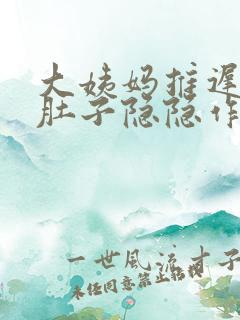 大姨妈推迟
肚子隐隐作
一世风流才子
未经同意禁止转载